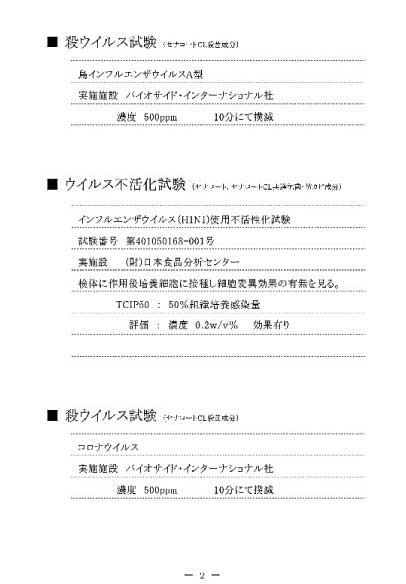 ■ 殺ウイルス試験 (セナコートCL殺菌成分)
鳥インフルエンザウイルスA型
実施施設 バイオサイド・インターナショナル社
濃度 500ppm 10分にて撲滅
■ ウイルス不活化試験 (セナコート、セナコートCL共通抗菌・防カビ成分)
インフルエンザウイルス(H1N1)使用不活性化試験
試験番号 第401050168-001号
実施設 (財)日本食品分析センター
検体に作用後培養細胞に接種し細胞変異効果の有無を見る。
TCIP50 : 50%組織培養感染量
評価 : 濃度 0.2w/v% 効果有り
■ 殺ウイルス試験 (セナコートCL殺菌成分)
コロナウイルス
実施施設 バイオサイド・インターナショナル社
濃度 500ppm 10分にて撲滅
— 2 —